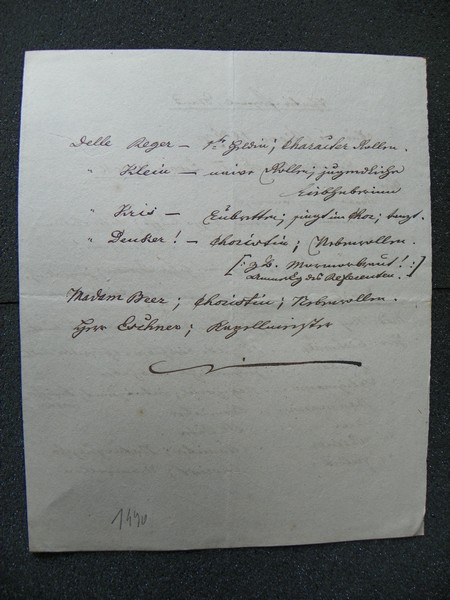 Delle Reger – 1te Heldin; Charakter Rollen.
" Klein – naive Rollen; jugendliche
Liebhaberinn
" Kris – Soubretten; singt im Chor; tanzt.
" Denker! – Choristin; Nebenrollen.
[: z. B. Marmorbraut! :]
Anmerkg des Referenten.
Madam Beer; Choristin; Nebenrollen.
Herr Eschner; Kapellmeister
1490